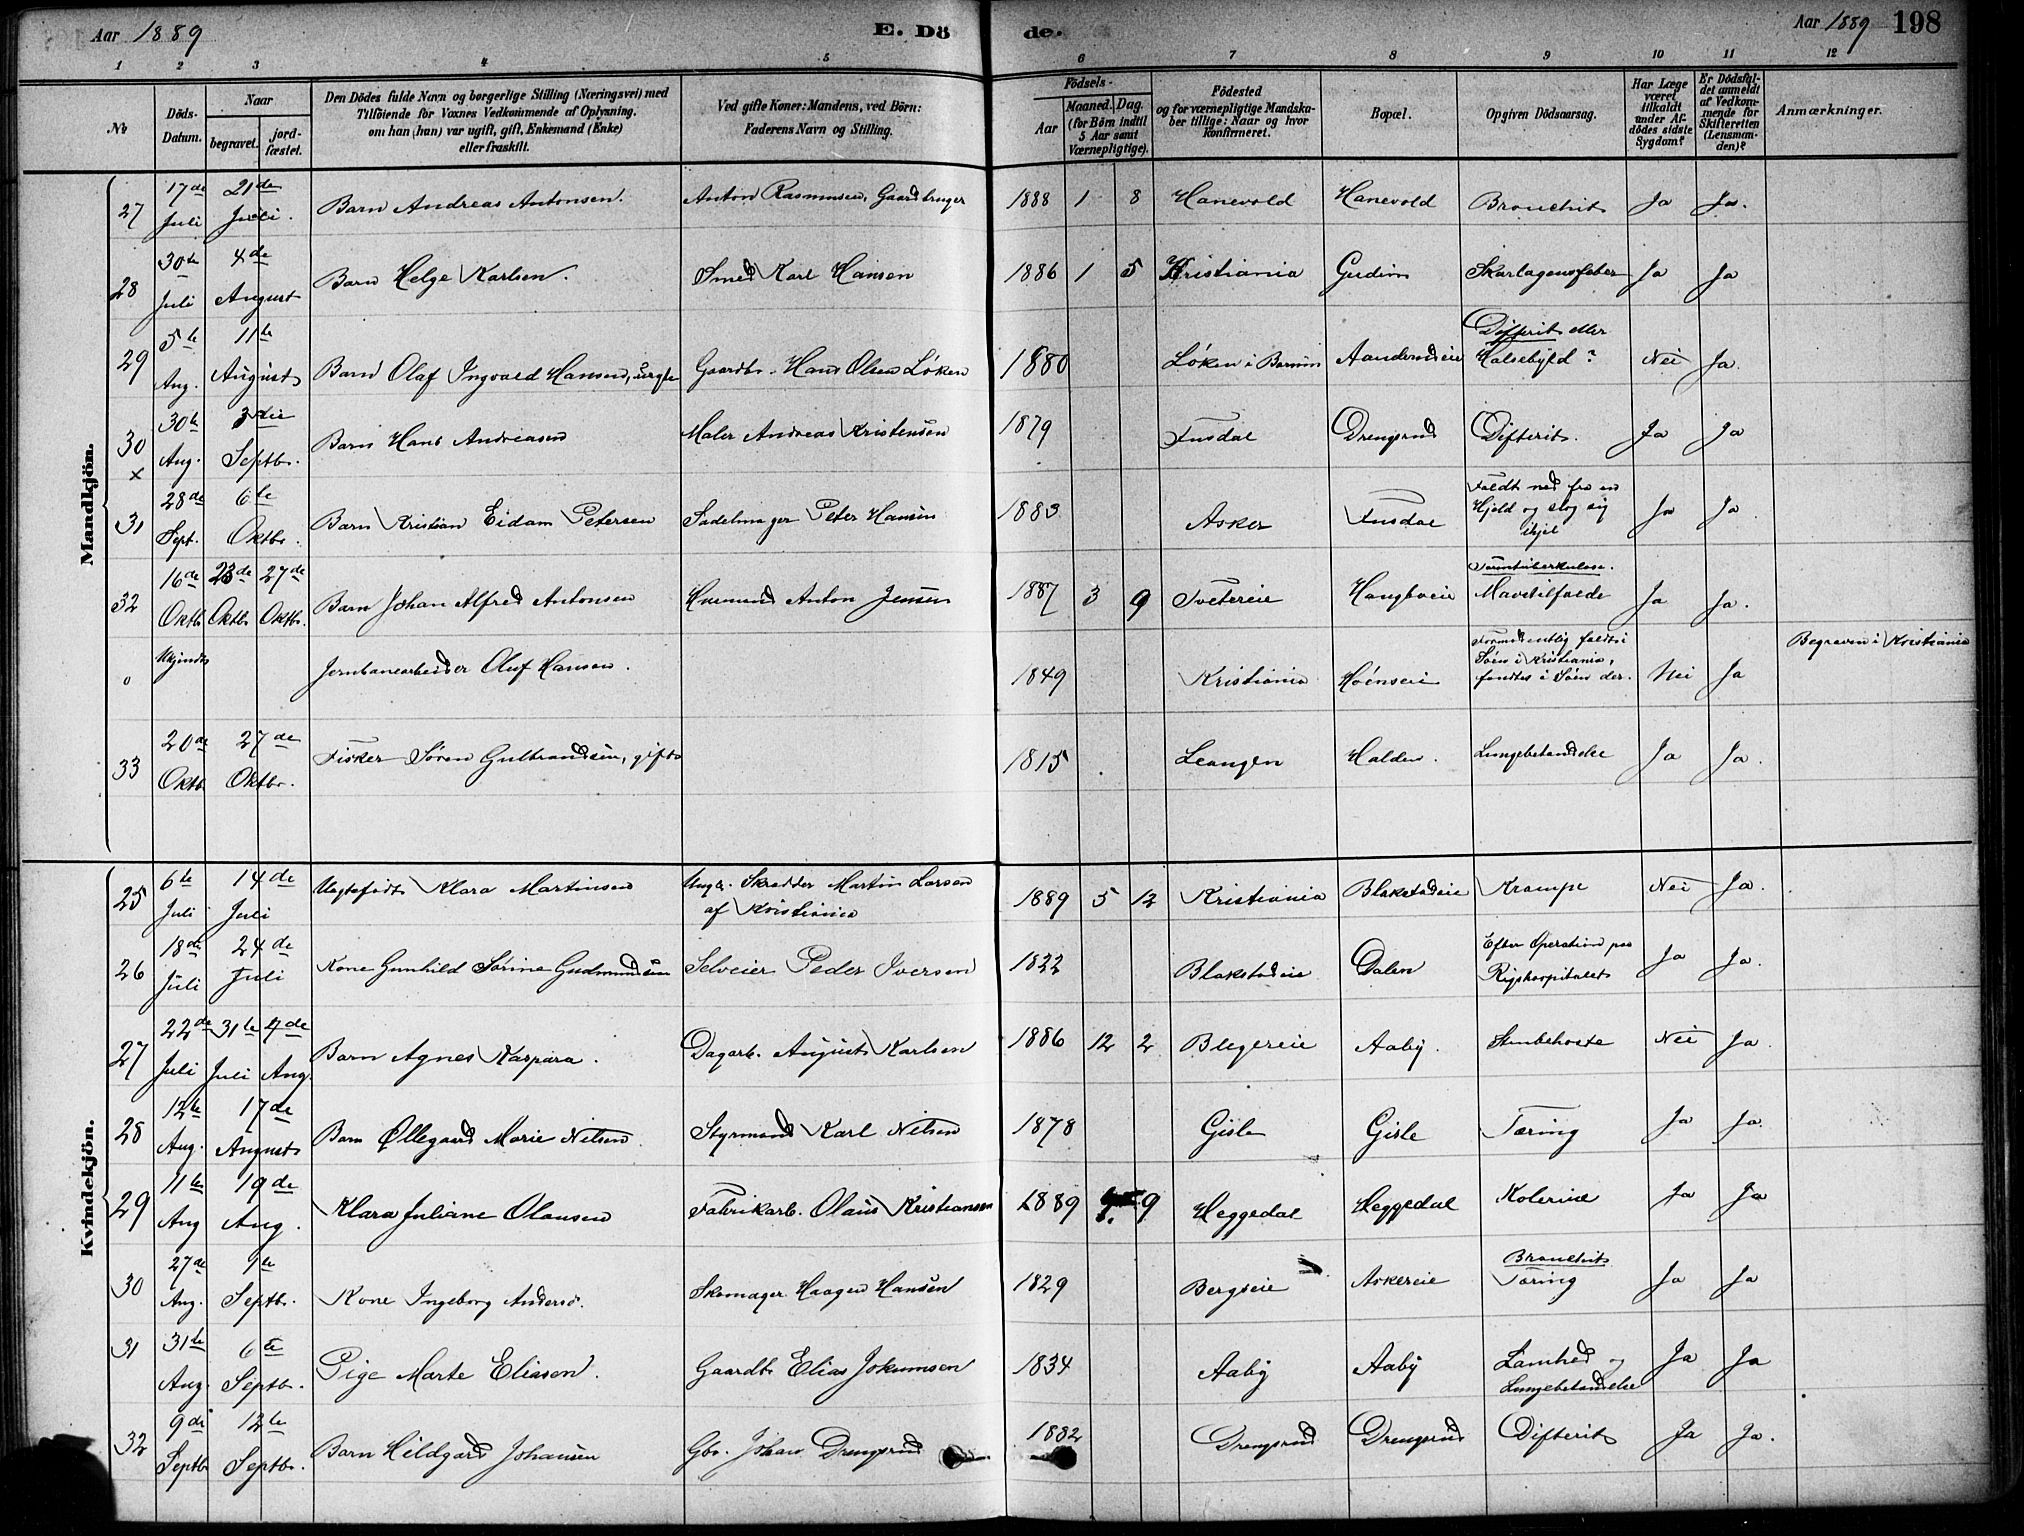 Aar 1889 E. Dö de. Aar 1889 198
1 2 3 4 5 6 7 8 9 10 11 12
No Döds-Datum. Naar begravet. jord-fæstet. Den Dödes fulde Navn og borgerlige Stilling (Næringsvei) med Tilföiende for Voxnes Vedkommende af Oplysning, om han (hun) var ugift, gift, Enkemand (Enke) eller fraskilt. Ved gifte Koner: Mandens, ved Börn: Faderens Navn og Stilling. Födsels- Aar Maaned. Dag. (for Börn indtil 5 Aar samt Værnepligtige). Födested og for værnepligtige Mandskaber tillige: Naar og hvor konfirmeret. Bopæl. Opgiven Dödsaarsag. Har Læge været tilkaldt under Afdödes sidste Sygdom? Er Dödsfaldet anmeldt af Vedkommende for Skifteretten (Lensmanden)? Anmærkninger.
Mandkjön.
27 17de Juli 21de Juli. Barn Andreas Antonsen. Anton Rasmussen, Gaardbruger 1888 1 8 Hanevold Hanevold Bronchit Ja Ja.
28 30te Juli 4de August Barn Helge Karlsen. Smed Karl Hansen 1886 1 5 Kristiania Gudim Skarlagensfeber Ja Ja
29 5te Aug. 11te August Barn Olaf Ingvald Hansen, uægte Gaardbr. Hans Olsen Løken 1880 Løken i Bærum Difterit eller Halsebyld? Nei Ja.
30 x 30te Aug. 3die Septbr. Barn Hans Andreasen Maler Andreas Kristensen 1879 Fusdal Drengsrud Difterit. Ja Ja
31 28de Sept. 6te Oktbr. Barn Kristian Eidam Petersen Sadelmager Peter Hansen 1883 Asker Fusdal Faldt ned fra en Hjeld og slog sig ihjel Ja Ja.
32 16de Oktbr 23de Oktbr 27de Oktbr. Barn Johan Alfred Antonsen Husmand Anton Jensen 1887 3 9 Tvetereie Mavetilfælde Ja Ja.
0 Ukjendt Jernbanearbeider Oluf Hansen. 1849 Kristiania Høenseie Formodentlig faldt i Søen i Kristiania, fandtes i Søen der. Nei Ja Begraven i Kristiania
33 20de Oktbr 27de Oktbr. Fisker Søren Gulbrandsen, gift 1815 Leangen Halden. Lungebetændelse Ja Ja.
Kvindekjön.
25 6te Juli 14de Juli Uægtefødt Klara Martinsen Ungk. Skrædder Martin Larsen af Kristiania 1889 5 12 Kristiania Blakstadeie Krampe Nei Ja.
26 18de Juli 24de Juli Kone Gunhild Sørine Gudmundsen Selveier Peder Iversen 1822 Blakstadeie Dalen Efter Operation paa Rigshospitalet Ja Ja.
27 22de Juli 31te Juli 4de Aug. Barn Agnes Kaspara. Dagarb. August Karlsen 1886 12 2 Aaby. Nei Ja.
28 12te Aug. 17de August Barn Øllegaard Marie Nilsen. Styrmand Karl Nilsen 1878 Gisle Gisle Tæring Ja Ja.
29 11te Aug 19de Aug. Klara Juliane Olausen Fabrikarb. Olaus Kristiansen 1889 9 Heggedal Heggedal Kolerine Ja Ja
30 27de Aug. 1te Septbr. Kone Ingeborg Andersd. Skomager Haagen Hansen 1829 Bergseie Askereie Bronchit Tæring Ja Ja
31 31te Aug. 6te Septbr. Pige Marte Eliasen. Gaardbr Elias Jokumsen 1834 Aaby Aaby Lamhed og Lungebetændelse Ja Ja
32 9de Septbr 12te Septbr. Barn Hildgard Johansen Gbr. Johan Drengsrud 1882 Drengsrud Drengsrud Difterit Ja Ja.